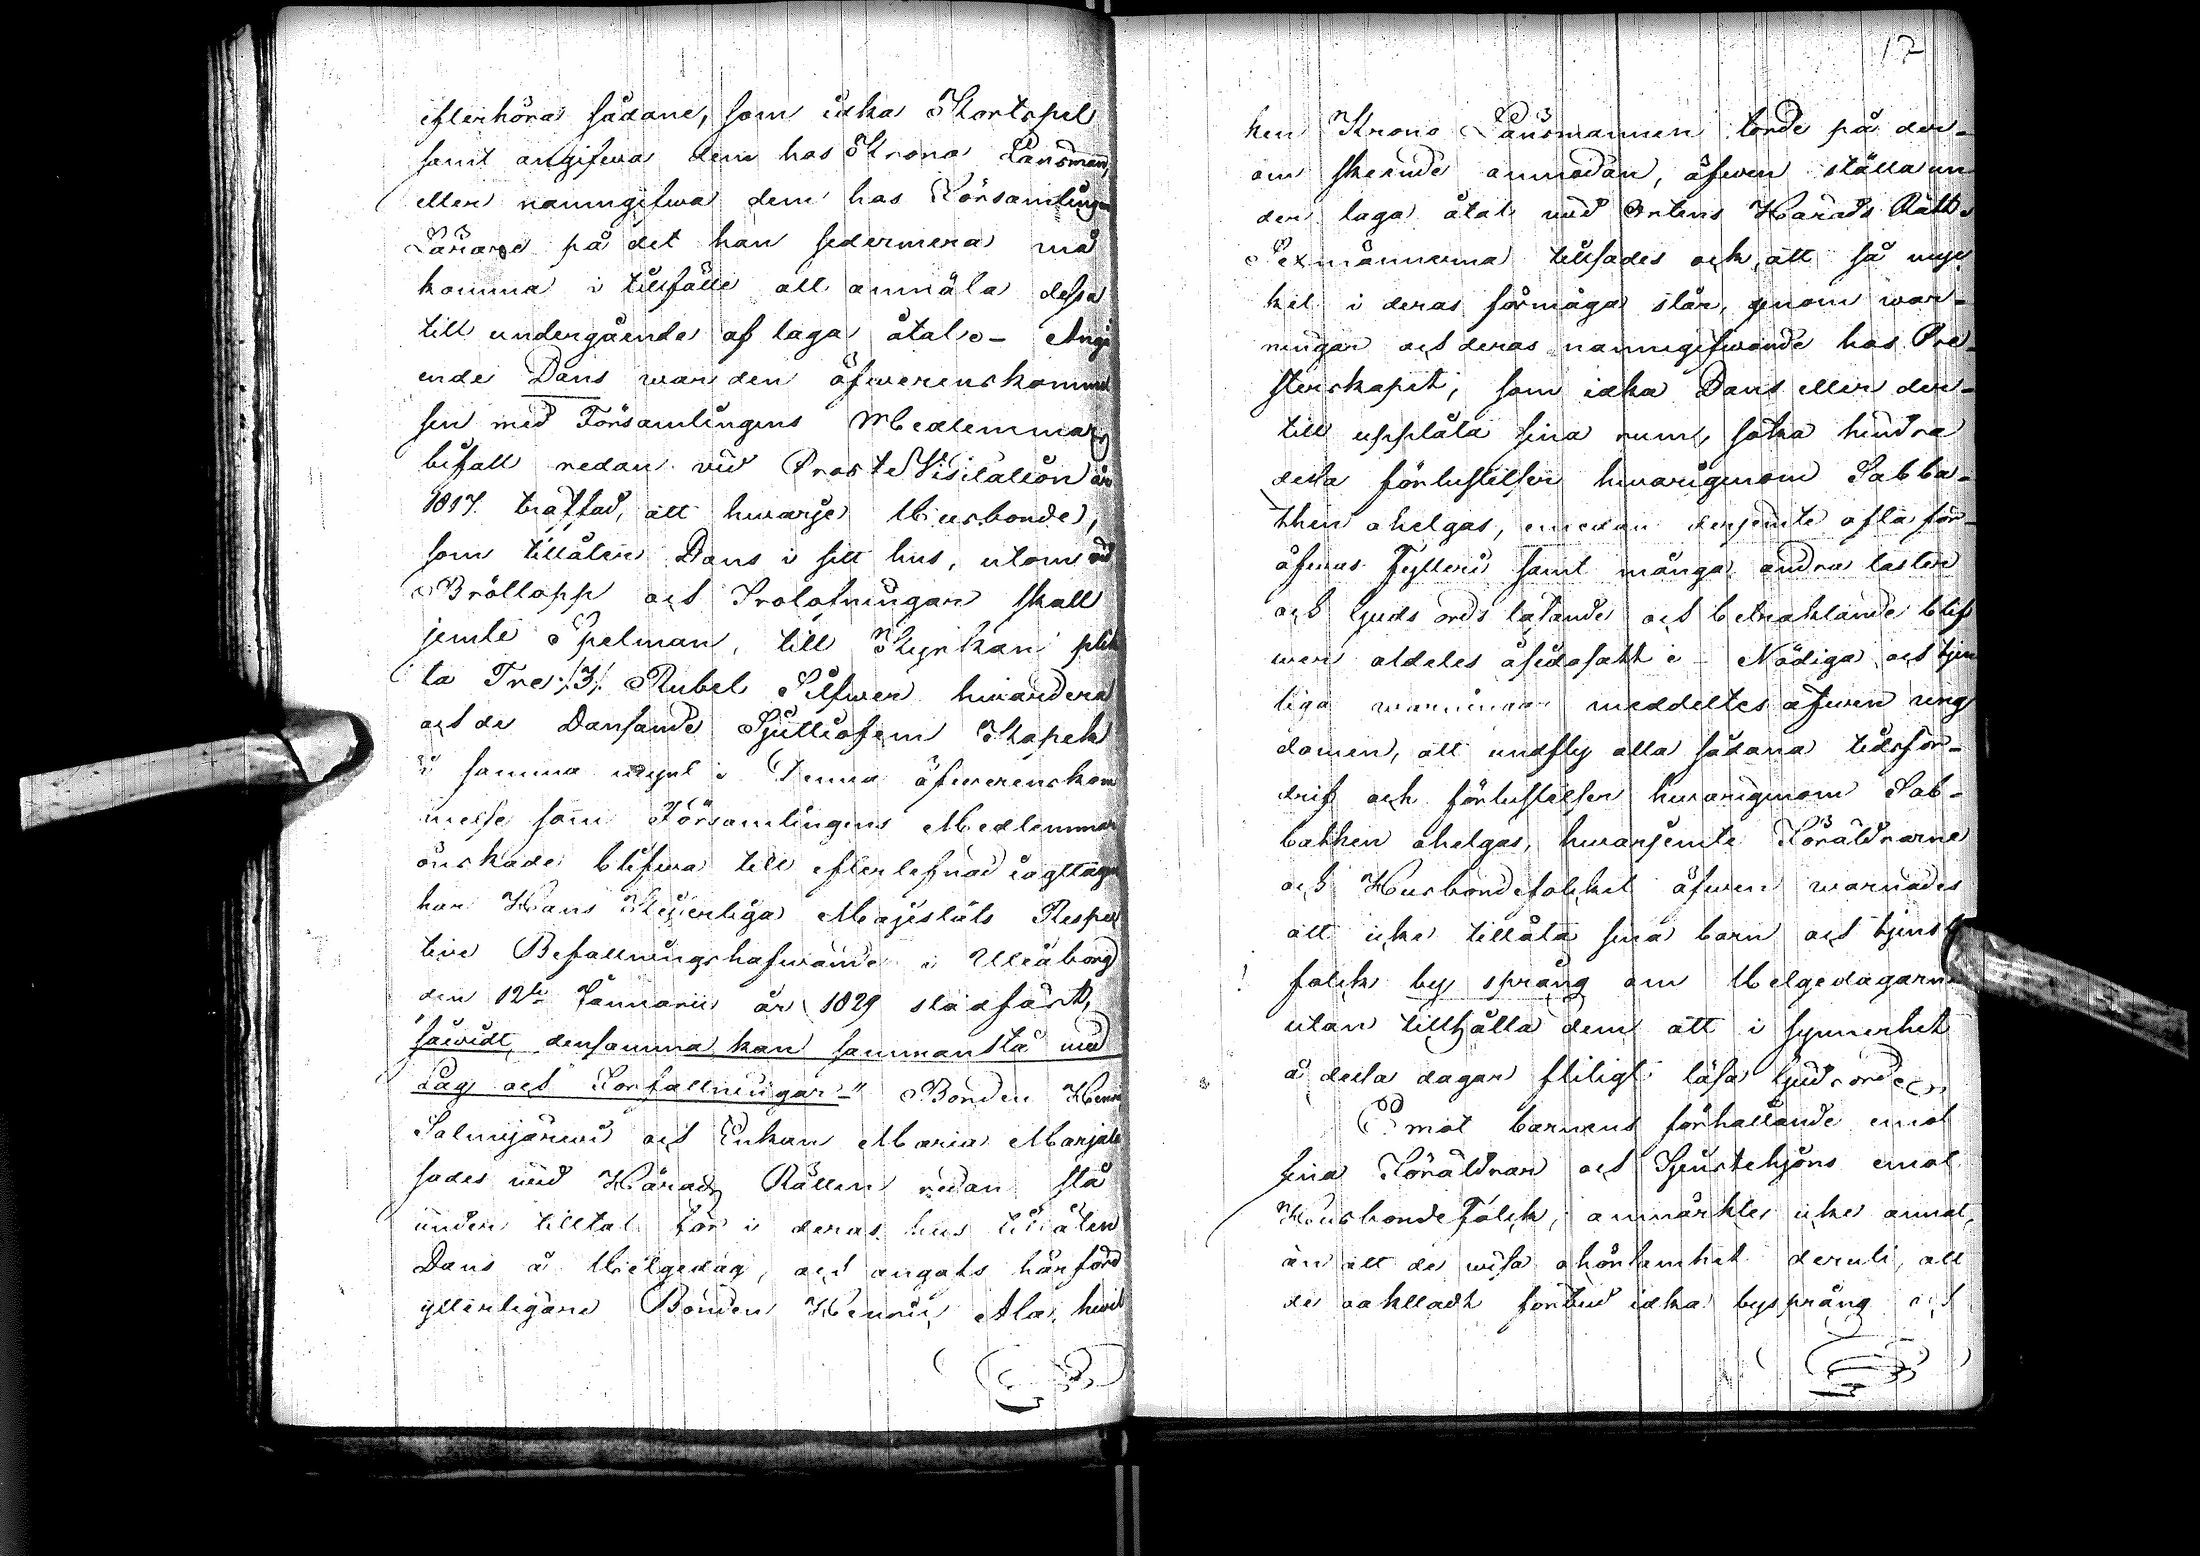 efterhöra sådane, som idka Kortspel
samt angifwa dem hos Krono Länsman,
eller namngifwa dem hos Församlingen
Lärare på det han sedermera må
komma i tillfälle att anmäla dessa
till undergående af laga åtal. Angå
ende Dans war den öfwerenskommel
sen med Församlingens Medlemmars
bifall redan wid Proste Visitation år
1817. träffad, att hwarje Husbonde,
som tillåter Dans i sitt hus, utom wid
Bröllopp och Trolofningar skall
jemte Spelman, till Kyrkan plik
ta Tre /:3:/ Rubel Silfwer hwardera
och de Dansande Sjuttiofem Kopek
i samma mynt. Denna öfwerenskom
melse som Församlingens Medlemmar
önskade blifwa till efterlefnad iagttagen
har Hans Kejserliga Majestäts Respek
tive Befallningshafwande i Uleåborg
den 12te Januarii år 1829 stadfäst,
såwidt densamma kan sammanstå med
Lag och Författningar." Bonden Henric
Salmijärwi och Enkan Maria Marjala
sades wid Härads Rätten redan stå
under tilltal för i deras hus tillåten
Dans å Helgedag, och angafs härförd
ytterligare Bonden Henric Ala, hwil
17
ken Krono Länsmannen torde på der-
om skeende anmodan, äfwen ställa un
der laga åtal wid Ortens Härads Rätt.
Sexmännerna tillsades ock, att så myc
ket i deras förmåga står, genom war-
ningar och deras namngifwande hos Pre-
sterskapet, som idka Dans eller der-
till upplåta sina rum, söka hindra
dessa förlustelser hwarigenom Sabba-
then ohelgas, emedan derjemte ofta för-
öfwas Fylleri samt många andra laster
och Guds ords läsande och betraktande blif
wer aldeles åsidosatt. Nödiga och tjen
liga warningar meddeltes äfwen ung
domen, att undfly alla sådana tidsför-
drif och förlustelser hwarigenom Sab-
bathen ohelgas, hwarjemte Föräldrarne
och Husbondefolcket äfwen warnades
att icke tillåta sina barn och tjenst
folck by språng om Helgedagarne
utan tillhålla dem att i synnerhet
å dessa dagar flitigt läsa Guds ord.
Emot barnens förhållande emot
sina Föräldrar och Tjenstehjons emot
Husbondefolck, anmärktes icke annat,
än att de wisa ohörsamhet deruti, att
de oaktadt förbud idka bysprång och